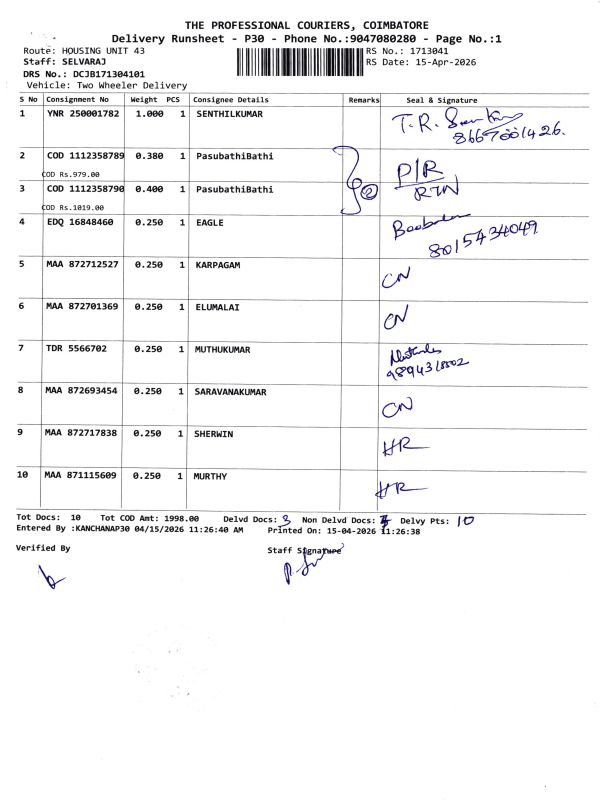 THE PROFESSIONAL COURIERS, COIMBATORE
Delivery Runsheet - P30 - Phone No.:9047080280 - Page No.:1
Route: HOUSING UNIT 43
RS No.: 1713041
Staff: SELVARAJ
RS Date: 15-Apr-2026
DRS No.: DCJB171304101
Vehicle: Two Wheeler Delivery
S No Consignment No Weight PCS Consignee Details Remarks Seal & Signature
1 YNR 250001782 1.000 1 SENTHILKUMAR T.R.
2 COD 1112358789 0.380 1 PasubathiBathi P/R
COD Rs.979.00 2 RTN
3 COD 1112358790 0.400 1 PasubathiBathi
COD Rs.1019.00
4 EDQ 16848460 0.250 1 EAGLE
8015434049
5 MAA 872712527 0.250 1 KARPAGAM CN
6 MAA 872701369 0.250 1 ELUMALAI CN
7 TDR 5566702 0.250 1 MUTHUKUMAR
8 MAA 872693454 0.250 1 SARAVANAKUMAR CN
9 MAA 872717838 0.250 1 SHERWIN HR
10 MAA 871115609 0.250 1 MURTHY HR
Tot Docs: 10 Tot COD Amt: 1998.00 Delvd Docs: 3 Non Delvd Docs: 7 Delvy Pts: 10
Entered By :KANCHANAP30 04/15/2026 11:26:40 AM Printed On: 15-04-2026 11:26:38
Verified By Staff Signature